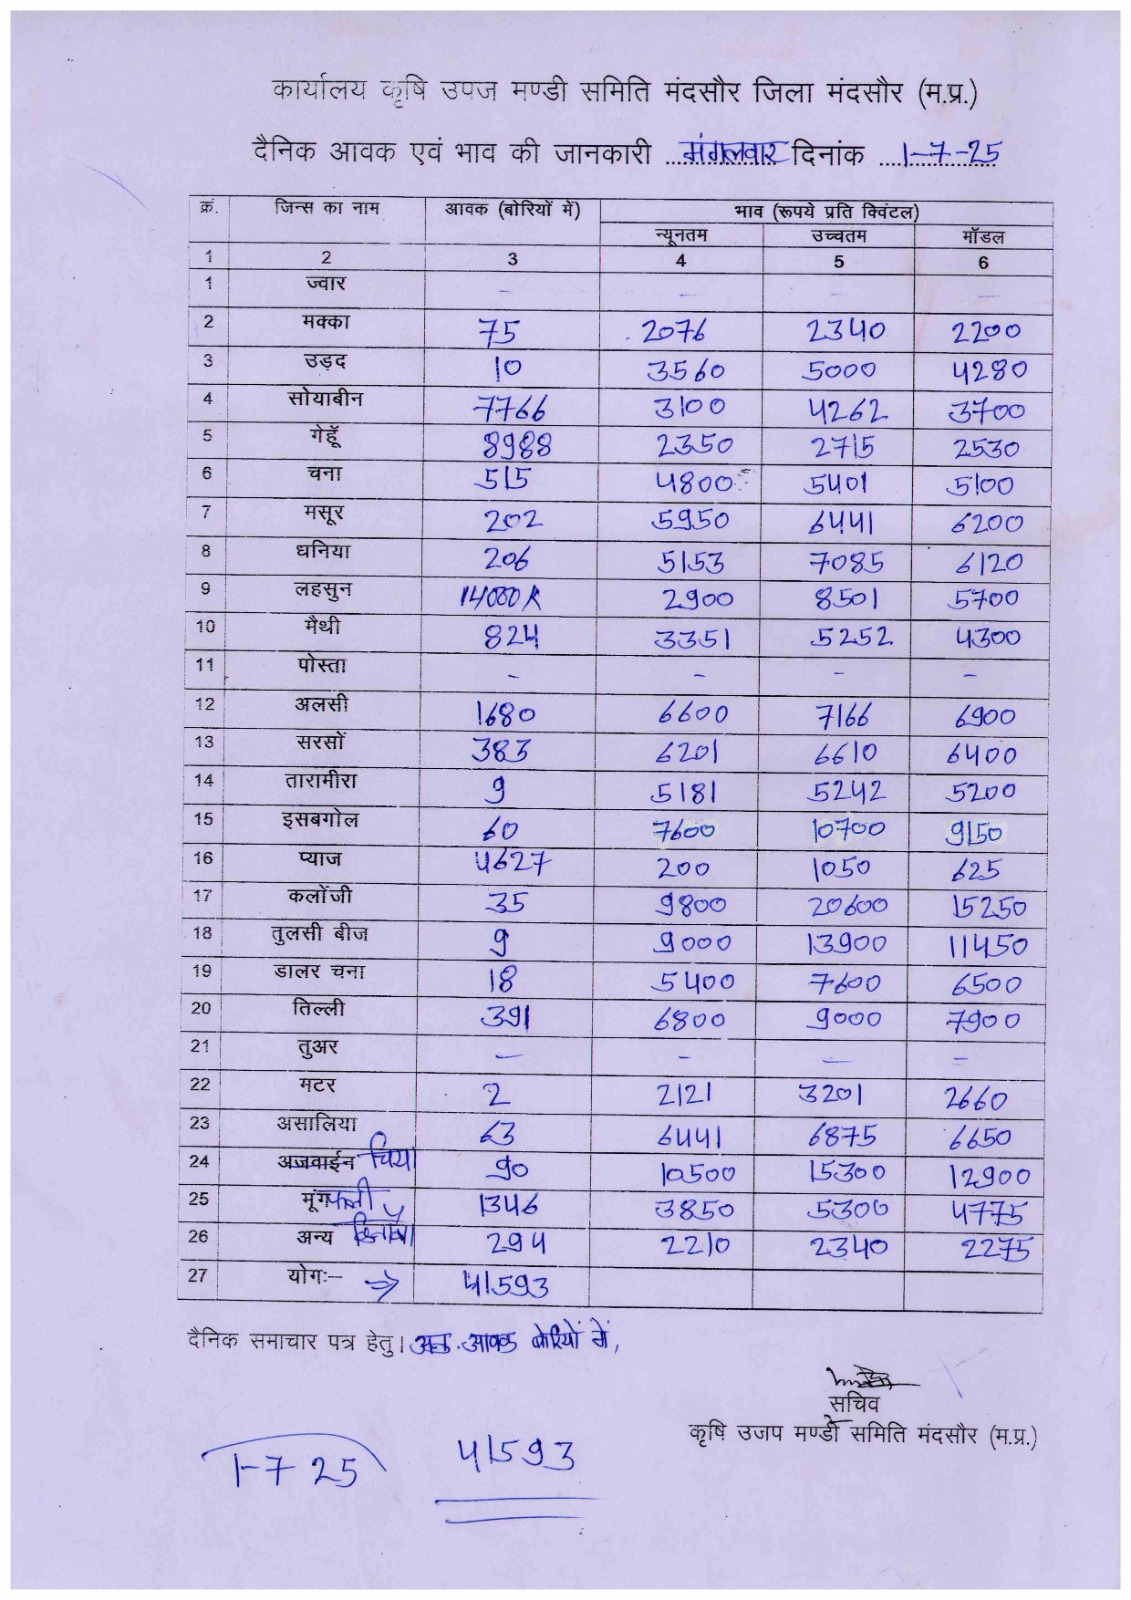 कार्यालय कृषि उपज मण्डी समिति मंदसौर जिला मंदसौर (म.प्र.)
दैनिक आवक एवं भाव की जानकारी मंगलवार दिनांक 1-7-25
क्रं. जिन्स का नाम आवक (बोरियों में) भाव (रूपये प्रति क्विंटल)
न्यूनतम उच्चतम मॉडल
1 2 3 4 5 6
1 ज्वार - - - -
2 मक्का 75 2076 2340 2200
3 उड़द 10 3560 5000 4280
4 सोयाबीन 7766 3100 4262 3700
5 गेहूॅ 8988 2350 2715 2530
6 चना 515 4800 5401 5100
7 मसूर 202 5950 6441 6200
8 धनिया 206 5153 7085 6120
9 लहसुन 14000 K 2900 8501 5700
10 मैथी 824 3351 5252 4300
11 पोस्ता - - - -
12 अलसी 1680 6600 7166 6900
13 सरसों 383 6201 6610 6400
14 तारामीरा 9 5181 5242 5200
15 इसबगोल 60 7600 10700 9150
16 प्याज 4627 200 1050 625
17 कलोंजी 35 9800 20600 15250
18 तुलसी बीज 9 9000 13900 11450
19 डालर चना 18 5400 7600 6500
20 तिल्ली 391 6800 9000 7900
21 तुअर - - - =
22 मटर 2 2121 3201 2660
23 असालिया 63 6441 6875 6650
24 अजवाईन चिया 90 10500 15300 12900
25 मूंगफली 1346 3850 5300 4775
26 अन्य 294 2210 2340 2275
27 योगः- → 41593
दैनिक समाचार पत्र हेतु। आवक बोरियों में,
सचिव
कृषि उजप मण्डी समिति मंदसौर (म.प्र.)
1-7 25 41593